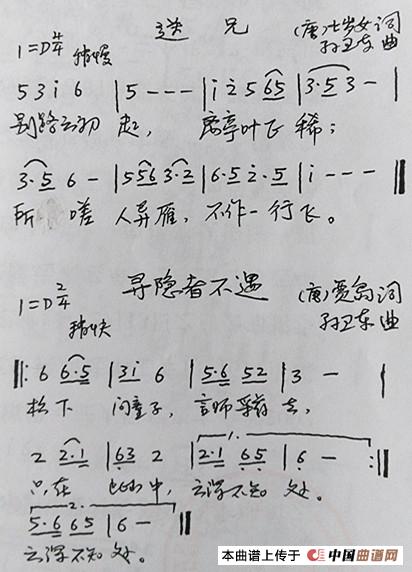 送兄
(唐)七岁女 词
1=D 4/4 稍慢
孙卫东 曲
5 3 i 6 | 5 - - - | i 2 5 65 | 3·5 3 - |
别路云初 起, 离亭叶飞 稀;
3·5 6 - | 556 3·2 | 6·5 2·5 | i - - - ‖
所 嗟 人异雁, 不作一行飞。
寻隐者不遇
(唐)贾岛 词
1=D 2/4 稍快
孙卫东 曲
‖: 6 6·5 | 3i 6 | 5·6 52 | 3 - |
松下 问童子, 言师采药 去,
1.
2 2·1 | 63 2 | 2·1 65 | 6 - :‖
只在 此山中, 云深不知 处。
2.
5·6 65 | 6 - ‖
云深不知 处。
本曲谱上传于 中国曲谱网